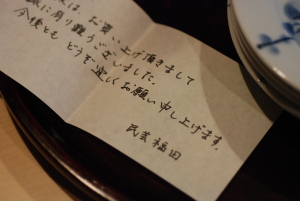 は、お買い上げ頂きまして
に有り難うございました。
今後とも どうぞ 宜しくお願い申し上げます。
民芸福田